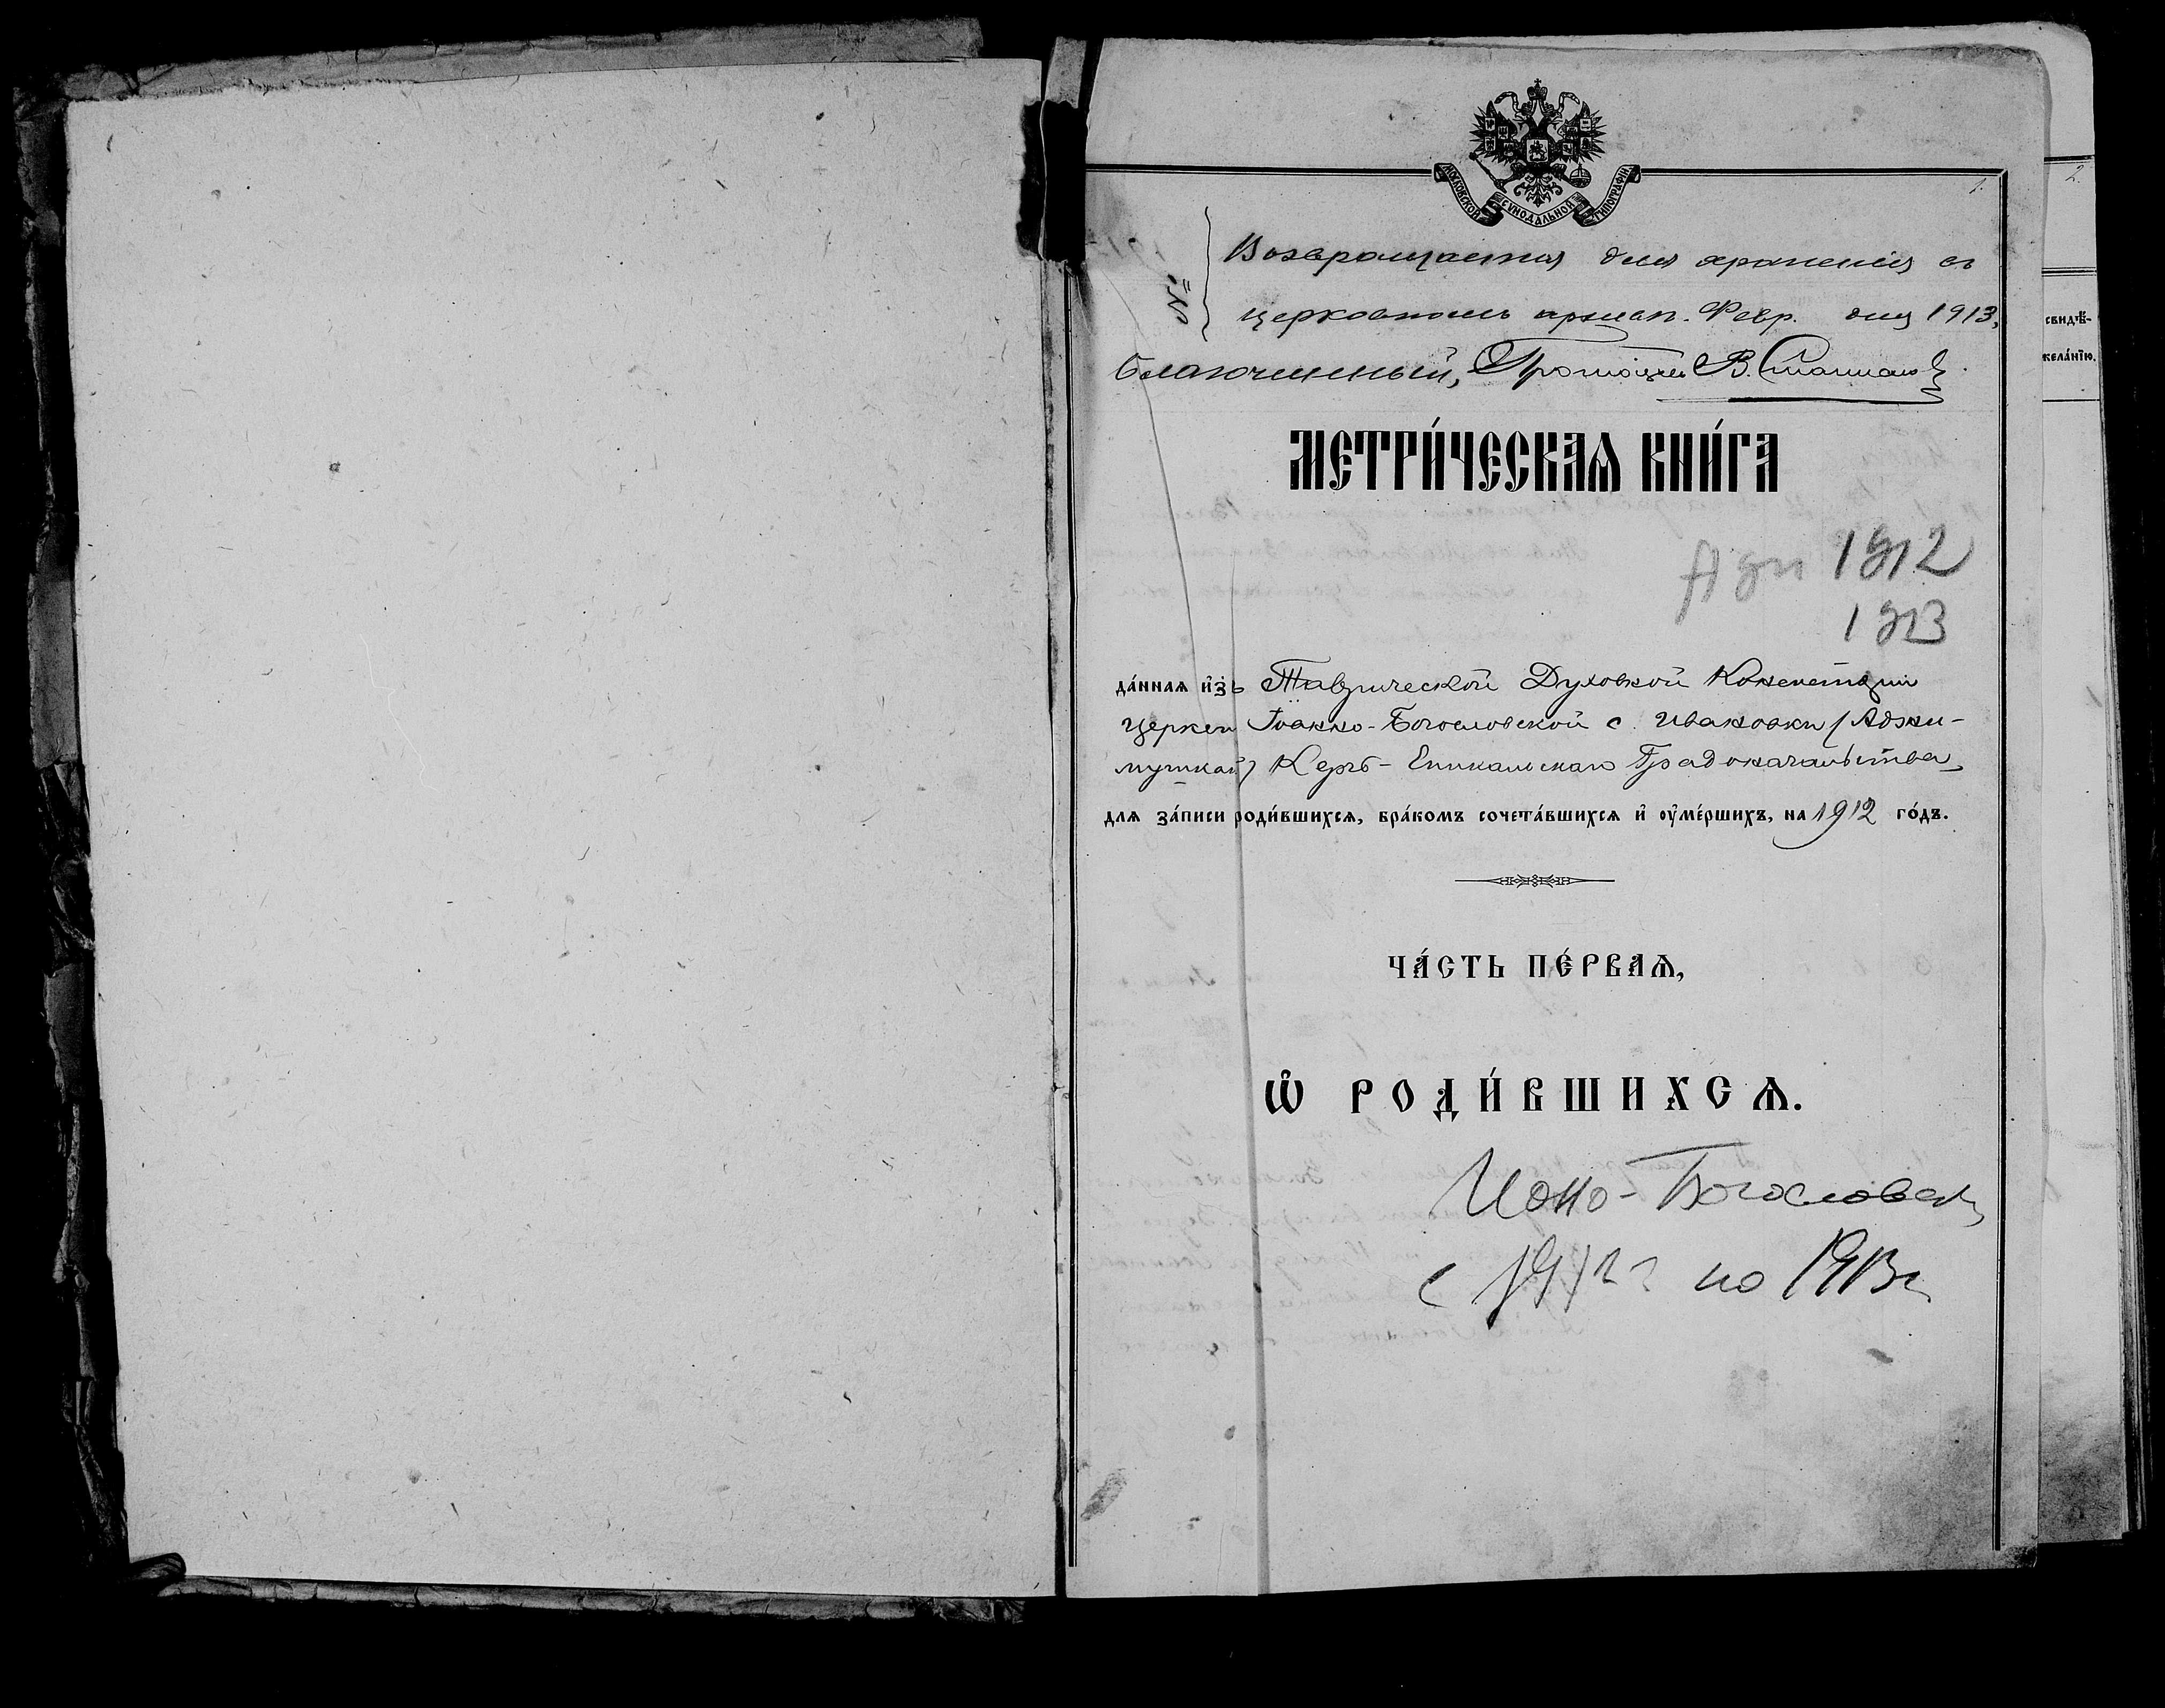 МОСКОВСКОЙ СѴНОДАЛЬНОЙ ТИПОГРАФІИ
1.
2.
№
Возвращается для храненія въ
церковномъ архивѣ. Февр. дня 1913,
Благочинный, Протоіерей В.
МЕТРИ́ЧЕСКАѦ КНИ́ГА
Адж 1912
1913
да́ннаѧ и҆зъ Таврической Духовной Консисторіи
Церкви Іоанно-Богословской с. Ивановки (Аджи-
мушкай) Керчь-Еникальскаго Градоначальства
для за́писи роди́вшихсѧ, бра́комъ сочета́вшихсѧ и҆ ᲂу҆ме́ршихъ, на 1912 го́дъ.
ЧА́СТЬ ПЕ́РВАѦ,
Ѽ РОДИ́ВШИХСѦ.
Ионо-Богословск
с 1912 г по 1913 г
свидѣ́-
жела́нїю.